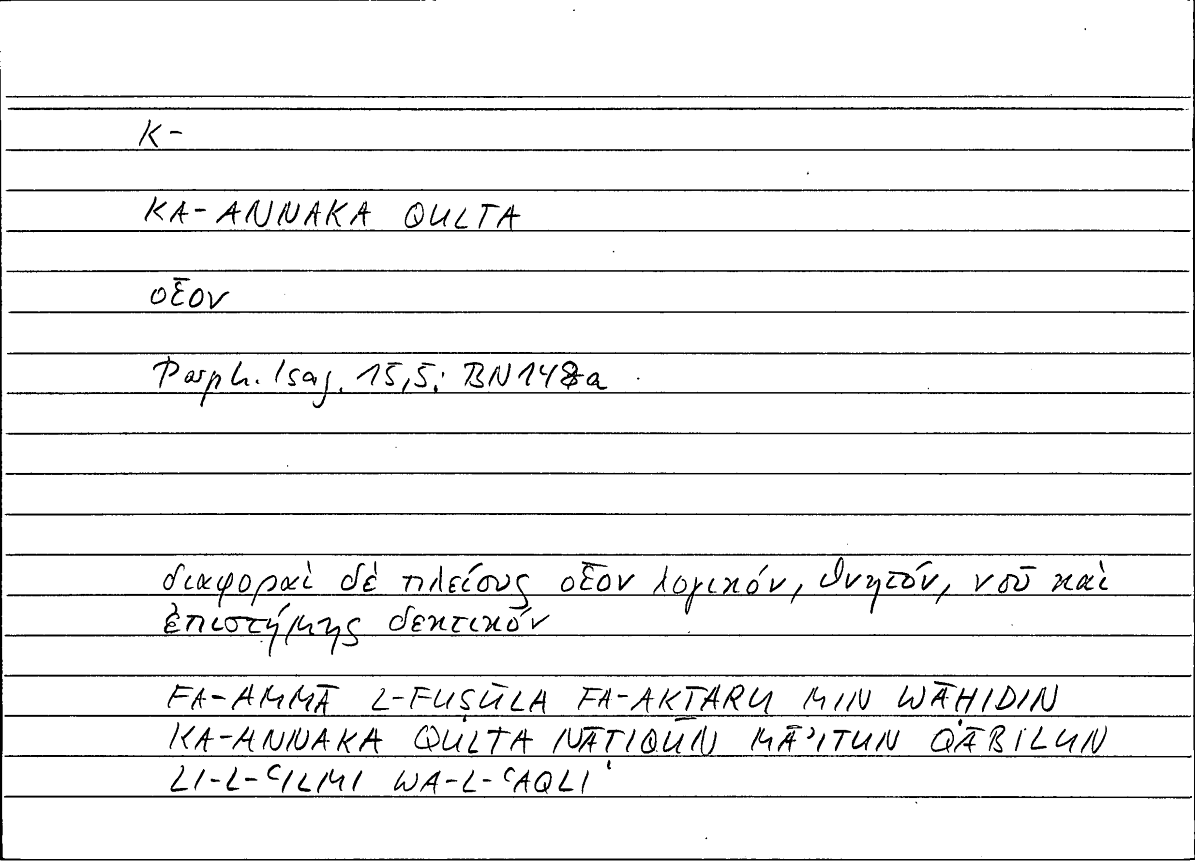 K-
KA-ANNAKA QULTA
οἷον
Porph. Isag. 15,5; BN148a
διαφοραὶ δὲ πλείους οἷον λογικόν, θνητόν, νοῦ καὶ
ἐπιστήμης δεκτικόν
FA-AMMĀ L-FUṢŪLA FA-AKṮARU MIN WĀḤIDIN
KA-ANNAKA QULTA NĀṬIQUN MĀʾITUN QĀBILUN
LI-L-ʿILMI WA-L-ʿAQLI